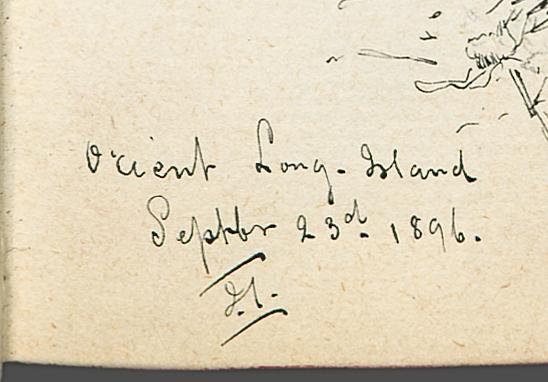 Orient Long-Island
Septbr 23d. 1896.